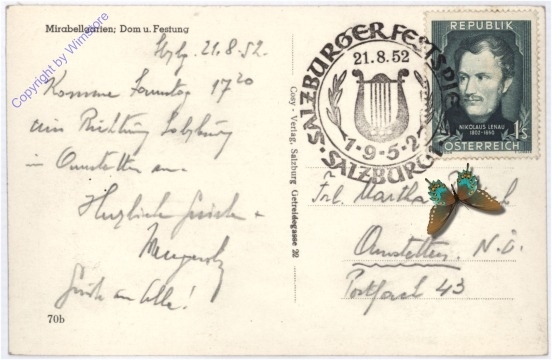 Mirabellgarten; Dom u. Festung
Copyright by Winstore
Sbg. 21.8.52.
Komme Sonntag 17 20
aus Richtung Salzburg
in Amstetten an.
Herzliche Grüße
Grüße an Alle!
70b
Cosy - Verlag, Salzburg Getreidegasse 22
SALZBURGER FESTSPIELE
21.8.52
1·9·5·2
SALZBURG
REPUBLIK
NIKOLAUS LENAU
1802-1850
1S
ÖSTERREICH
Frl. Martha
Amstetten N.Ö.
Postfach 43